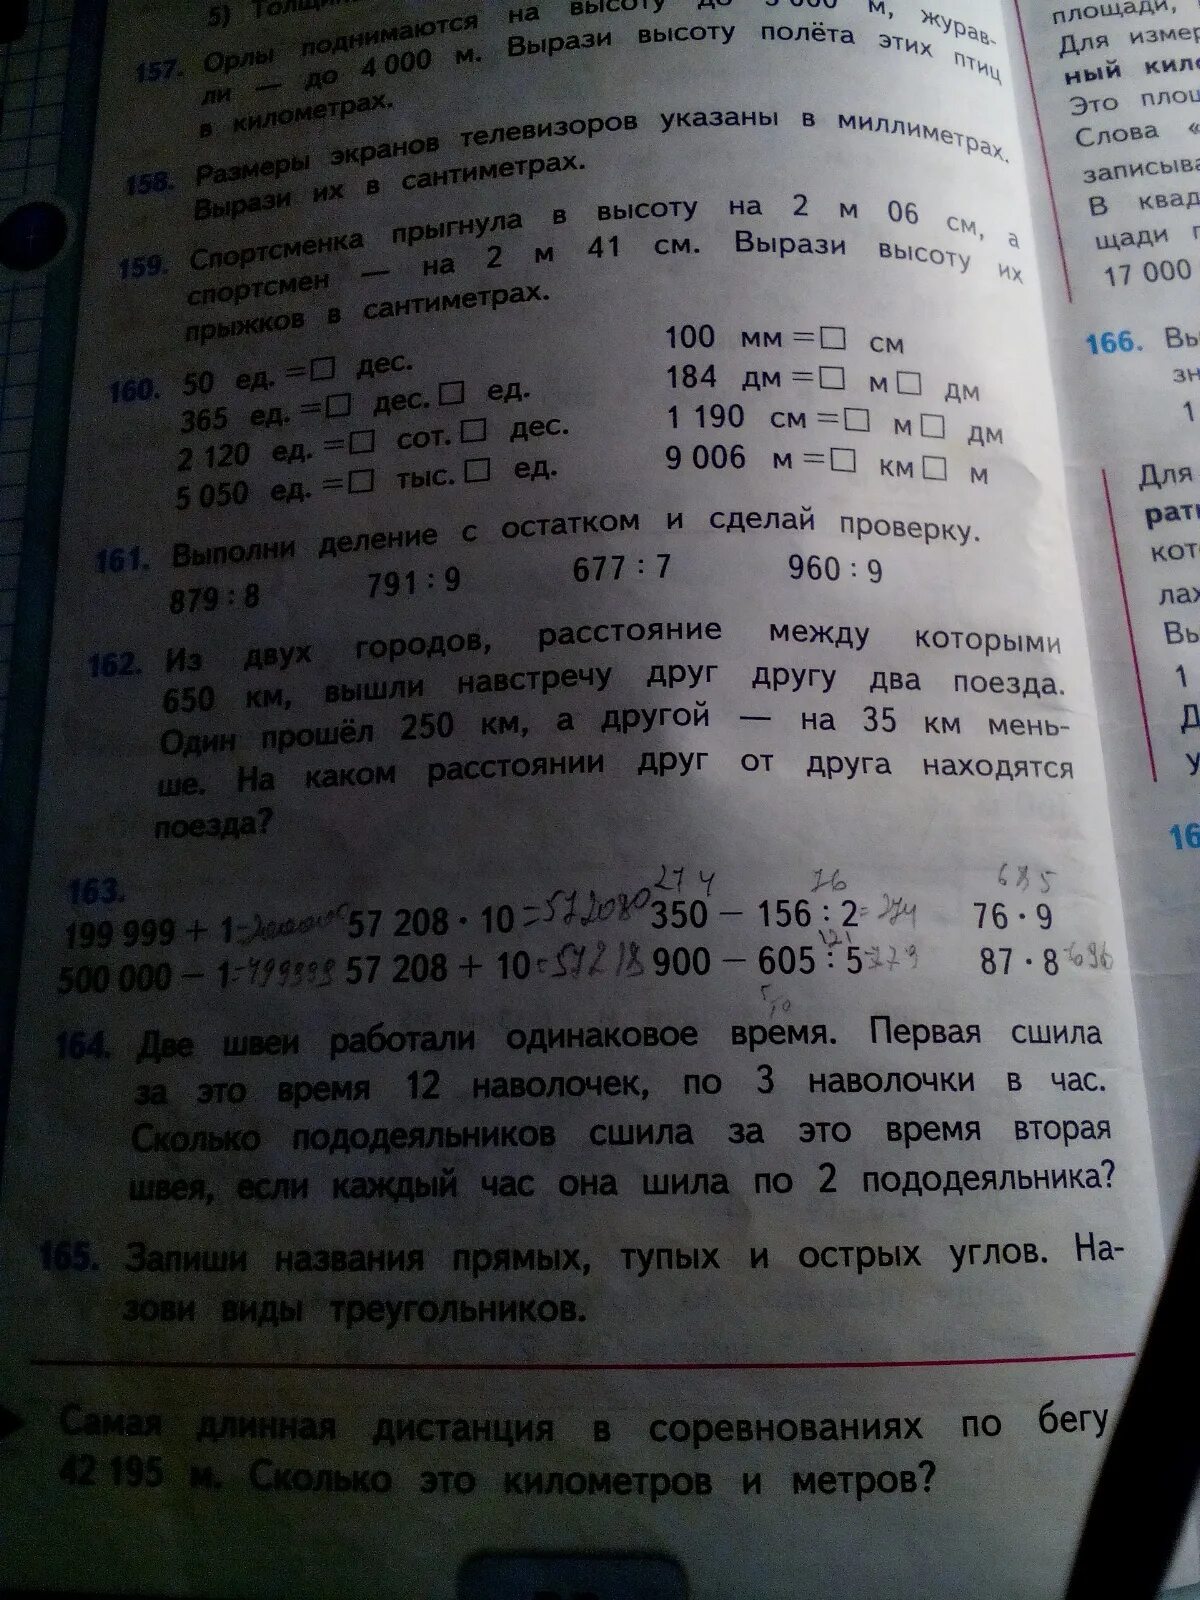 5) Толщин
157. Орлы поднимаются на высоту до 5 000 м, журав-
ли — до 4 000 м. Вырази высоту полёта этих птиц
в километрах.
158. Размеры экранов телевизоров указаны в миллиметрах.
Вырази их в сантиметрах.
159. Спортсменка прыгнула в высоту на 2 м 06 см, а
спортсмен — на 2 м 41 см. Вырази высоту их
прыжков в сантиметрах.
160. 50 ед. = □ дес. 100 мм = □ см
365 ед. = □ дес. □ ед. 184 дм = □ м □ дм
2 120 ед. = □ сот. □ дес. 1 190 см = □ м □ дм
5 050 ед. = □ тыс. □ ед. 9 006 м = □ км □ м
161. Выполни деление с остатком и сделай проверку.
879 : 8 791 : 9 677 : 7 960 : 9
162. Из двух городов, расстояние между которыми
650 км, вышли навстречу друг другу два поезда.
Один прошёл 250 км, а другой — на 35 км мень-
ше. На каком расстоянии друг от друга находятся
поезда?
163.
274 76 685
199 999 + 1 57 208 · 10 = 572080 350 − 156 : 2 = 274 76 · 9
121
500 000 − 1 = 499999 57 208 + 10 = 57218 900 − 605 : 5 = 779 87 · 8 = 696
164. Две швеи работали одинаковое время. Первая сшила
за это время 12 наволочек, по 3 наволочки в час.
Сколько пододеяльников сшила за это время вторая
швея, если каждый час она шила по 2 пододеяльника?
165. Запиши названия прямых, тупых и острых углов. На-
зови виды треугольников.
Самая длинная дистанция в соревнованиях по бегу
42 195 м. Сколько это километров и метров?
площади,
Для измер
ный кило
Это площ
Слова «
записыва
В квад
щади п
17 000
166. Вы
зн
1
Для
рати
кот
лах
Вы
1
Д
у
16